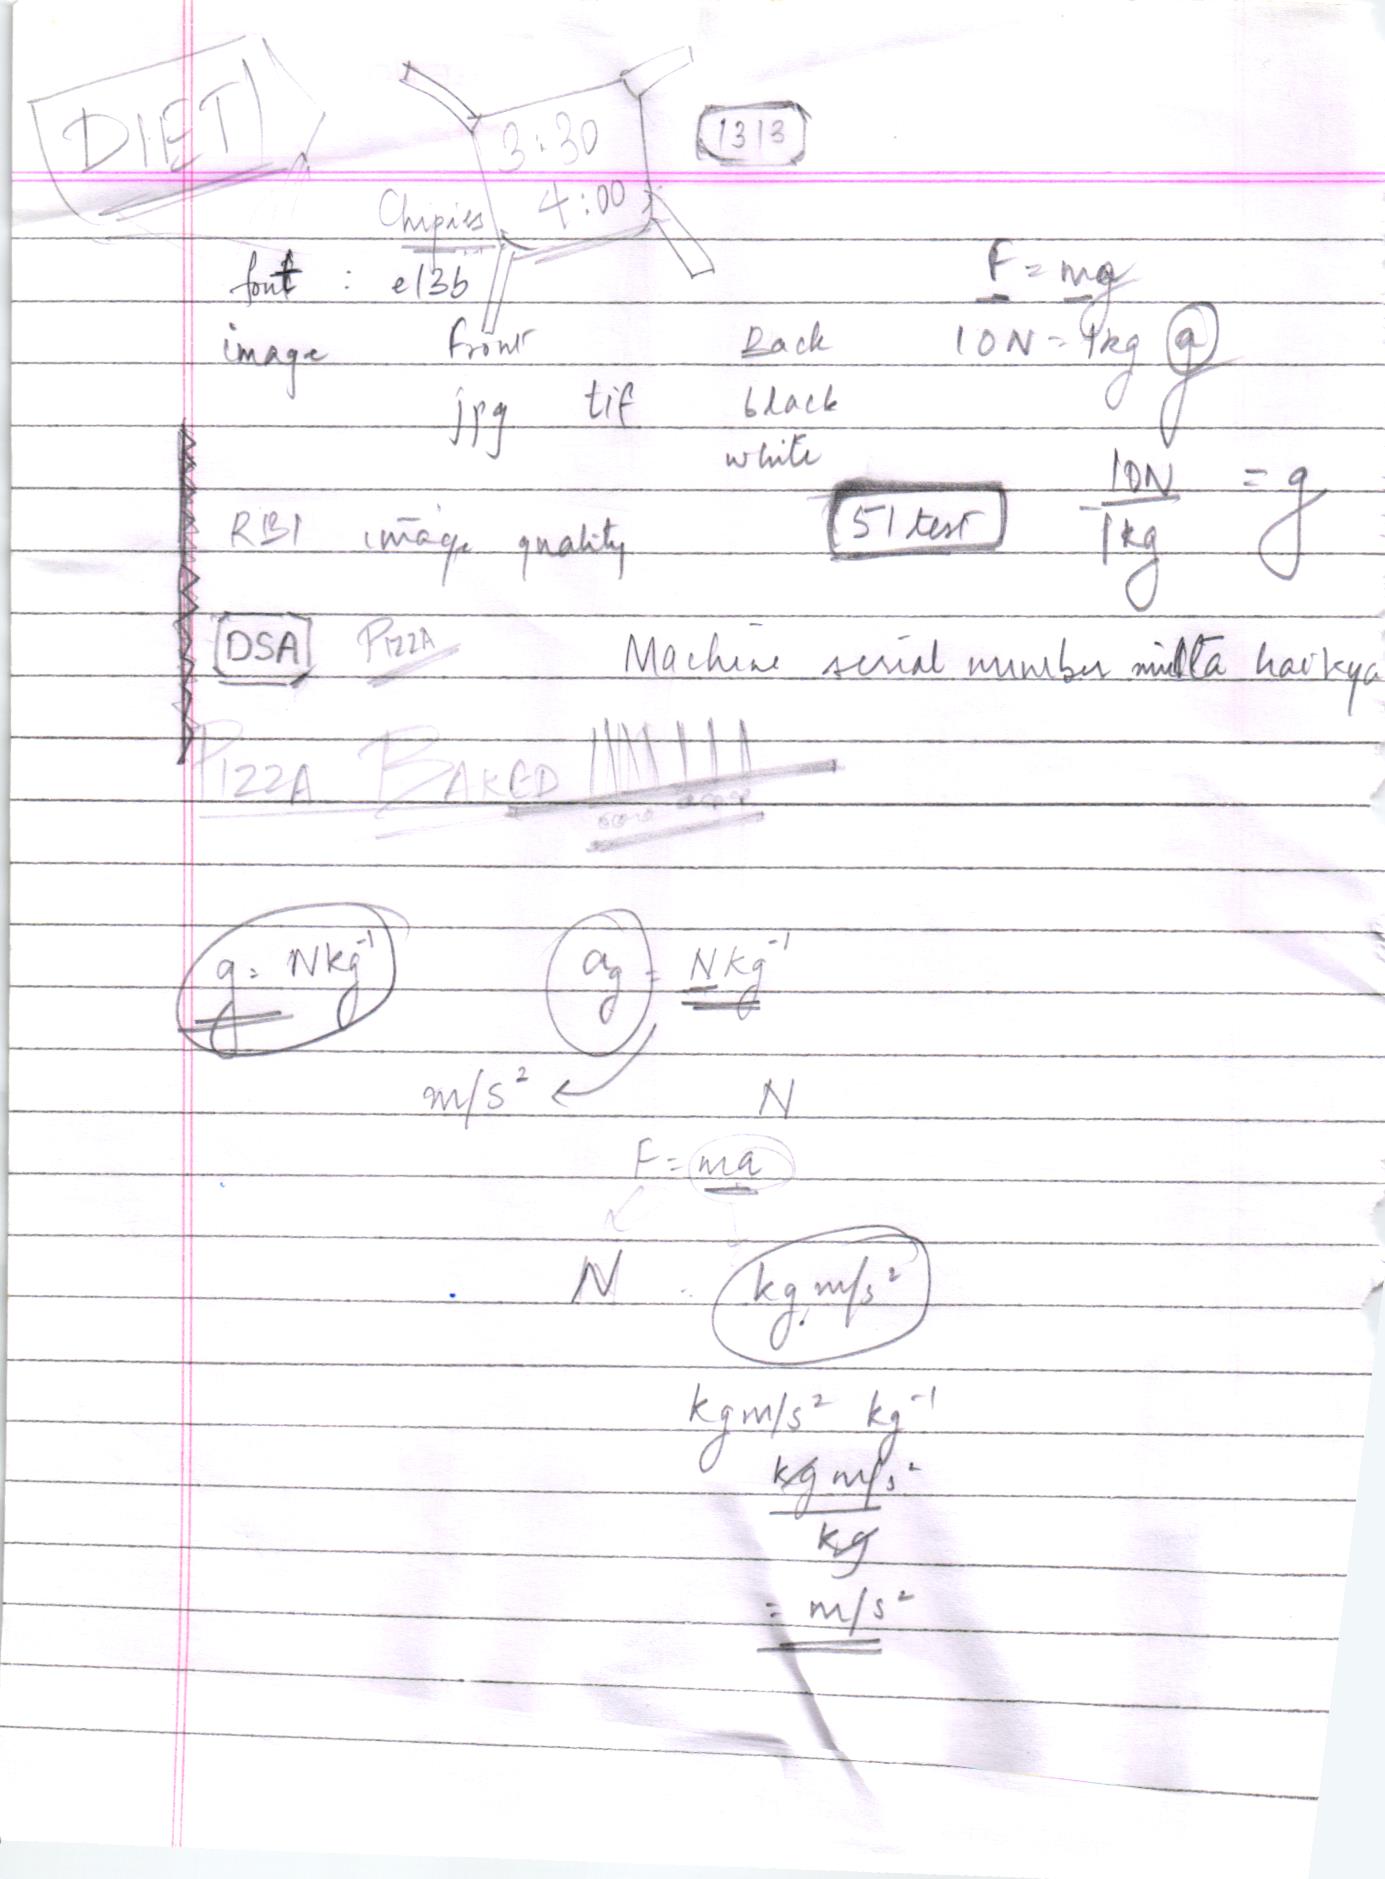 DIET
3:30
1313
4:00
Chipies
font : e13b
F = mg
image front Back
10N = 1kg g
jpg tif black
white
10N = g
1kg
RBI image quality 51 test
DSA PIZZA Machine serial number milta hai kya
PIZZA BAKED
g = Nkg⁻¹ a_g = Nkg⁻¹
m/s² N
F = ma
N kg m/s²
kg m/s² kg⁻¹
kg m/s²
kg
= m/s²